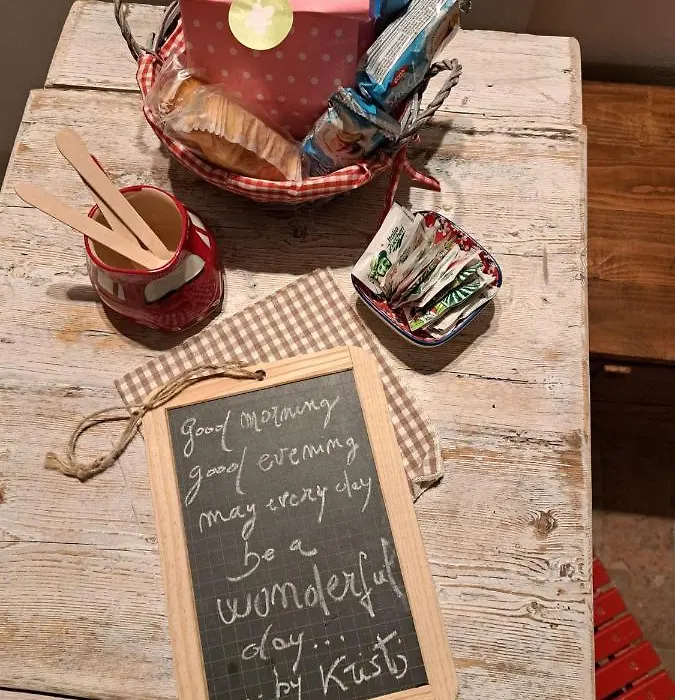 good morning
good evening
may every day
be a
wonderful
day...
..by Kristj